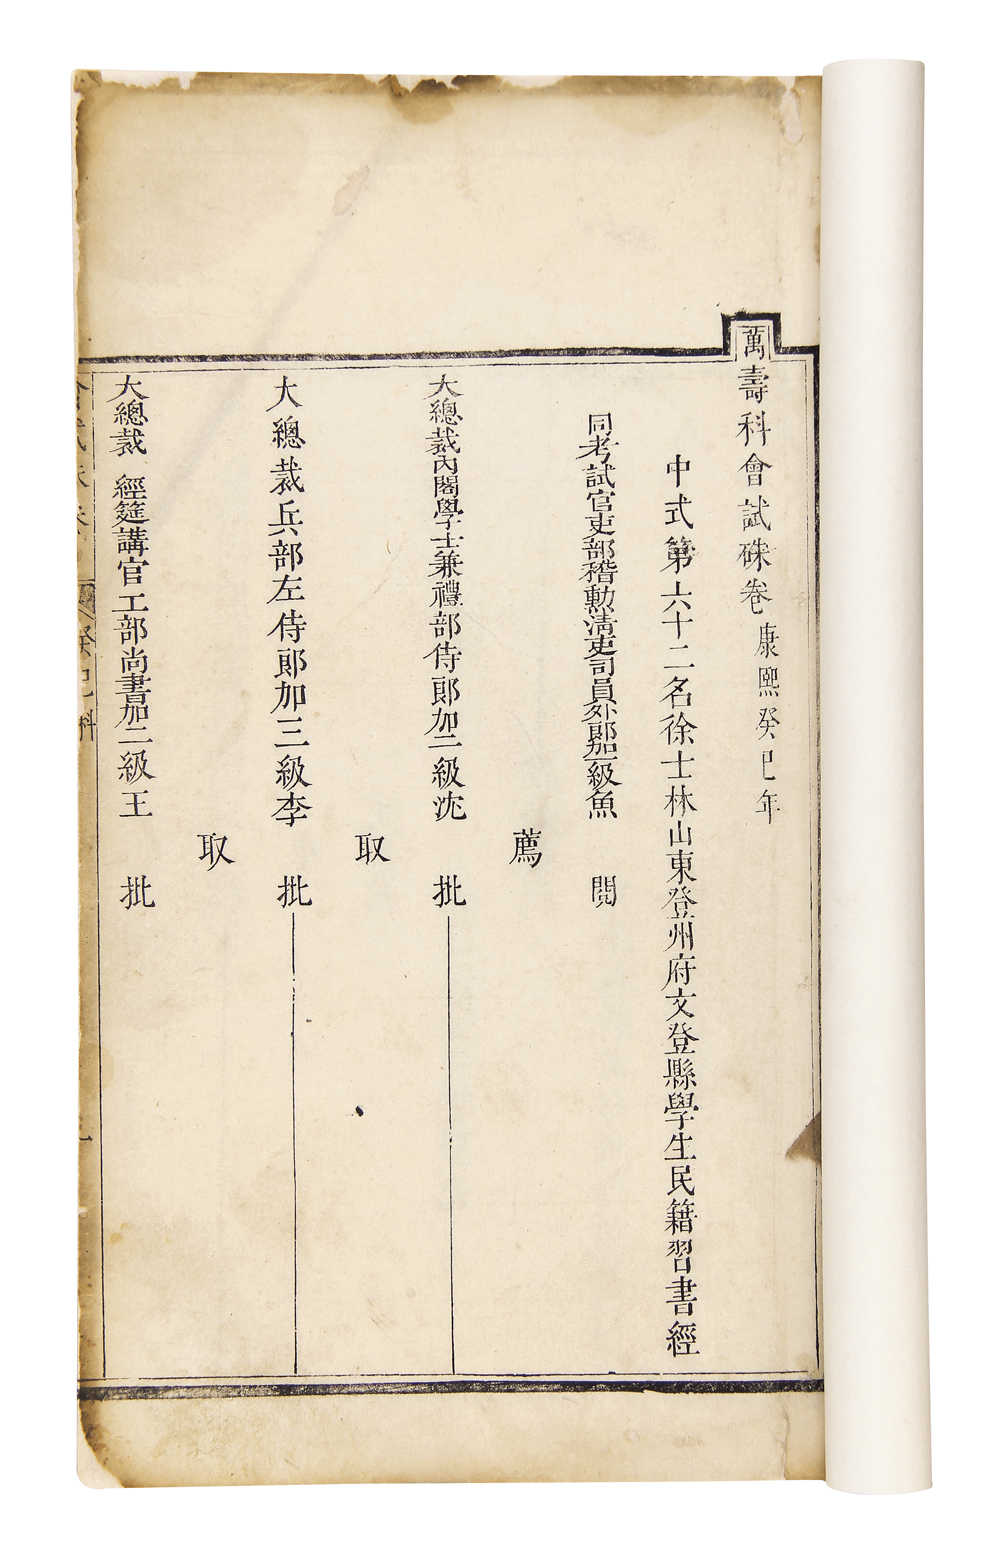 萬壽科會試硃卷康熙癸巳年
中式第六十二名徐士林山東登州府文登縣學生民籍習書經
同考試官吏部稽勳清吏司員外郎加一級魚 閱
薦
大總裁內閣學士兼禮部侍郎加二級沈 批
取
大總裁兵部左侍郎加三級李 批
取
大總裁 經筵講官工部尚書加二級王 批
會試硃卷 癸巳科